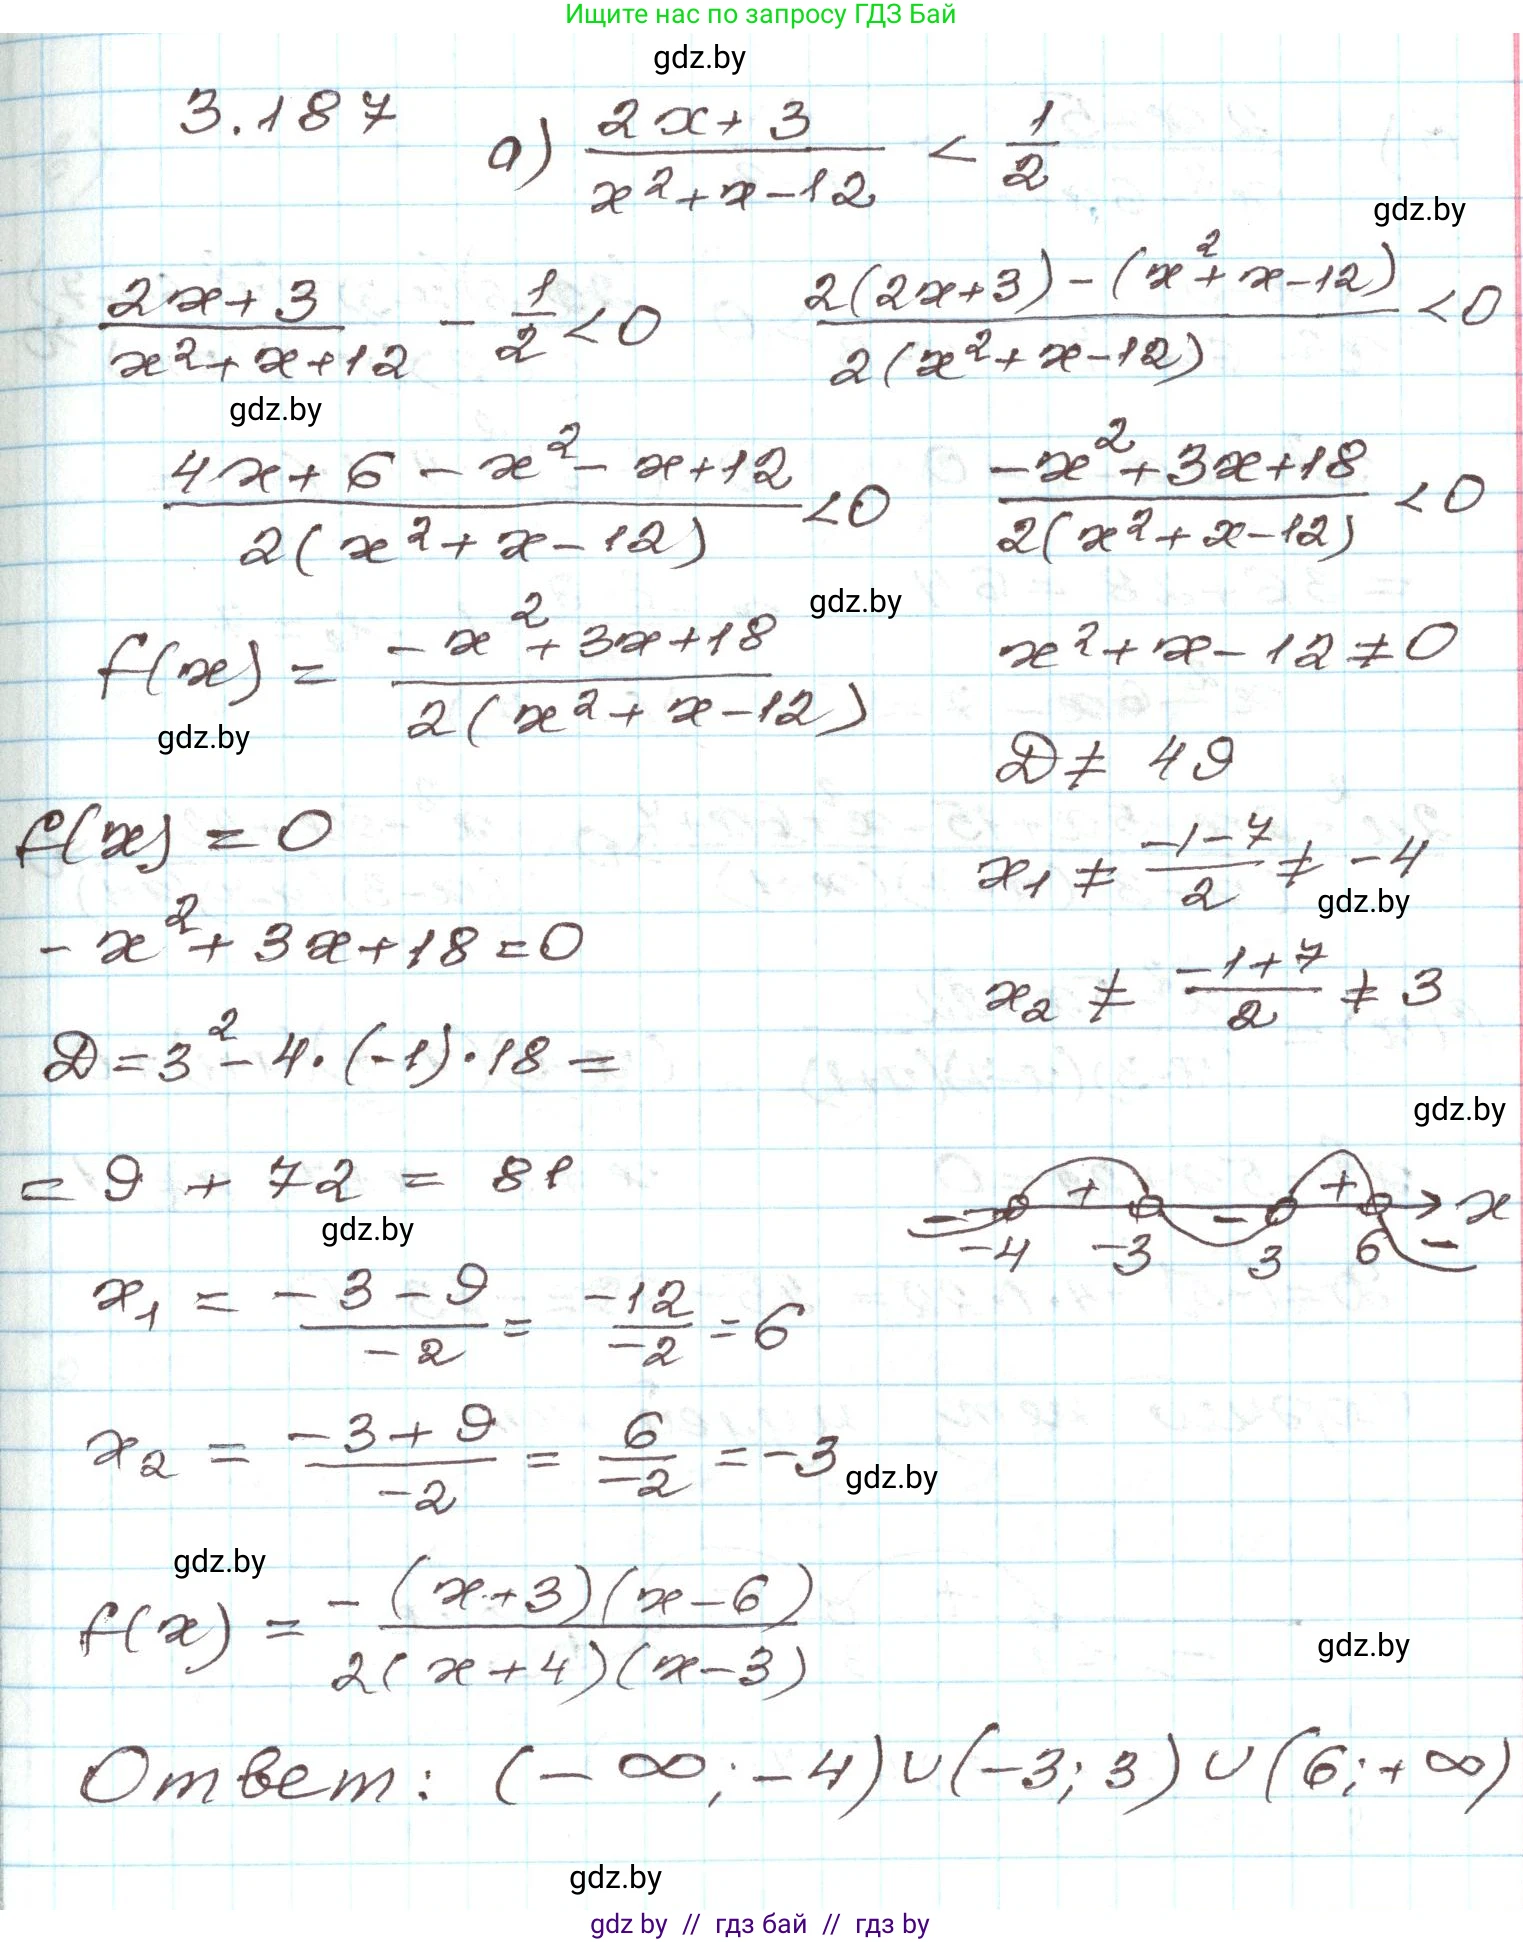 Ищите нас по запросу ГДЗ Бай
gdz.by
3.187
а) (2x+3)/(x²+x-12) < 1/2
gdz.by
(2x+3)/(x²+x+12) - 1/2 < 0
(2(2x+3)-(x²+x-12))/(2(x²+x-12)) < 0
gdz.by
(4x+6-x²-x+12)/(2(x²+x-12)) < 0
(-x²+3x+18)/(2(x²+x-12)) < 0
gdz.by
f(x) = (-x²+3x+18)/(2(x²+x-12))
x²+x-12≠0
gdz.by
D≠ 49
f(x) = 0
x₁ ≠ (-1-7)/2 ≠ -4
gdz.by
-x²+3x+18=0
x₂ ≠ (-1+7)/2 ≠ 3
D=3²-4·(-1)·18=
gdz.by
= 9 + 72 = 81
- + - + - x
-4 -3 3 6
gdz.by
x₁ = (-3-9)/(-2) = (-12)/(-2) = 6
x₂ = (-3+9)/(-2) = 6/(-2) = -3
gdz.by
gdz.by
f(x) = -((x+3)(x-6))/(2(x+4)(x-3))
gdz.by
Ответ: (-∞;-4)∪(-3;3)∪(6;+∞)
gdz.by
gdz by // гдз бай // гдз by